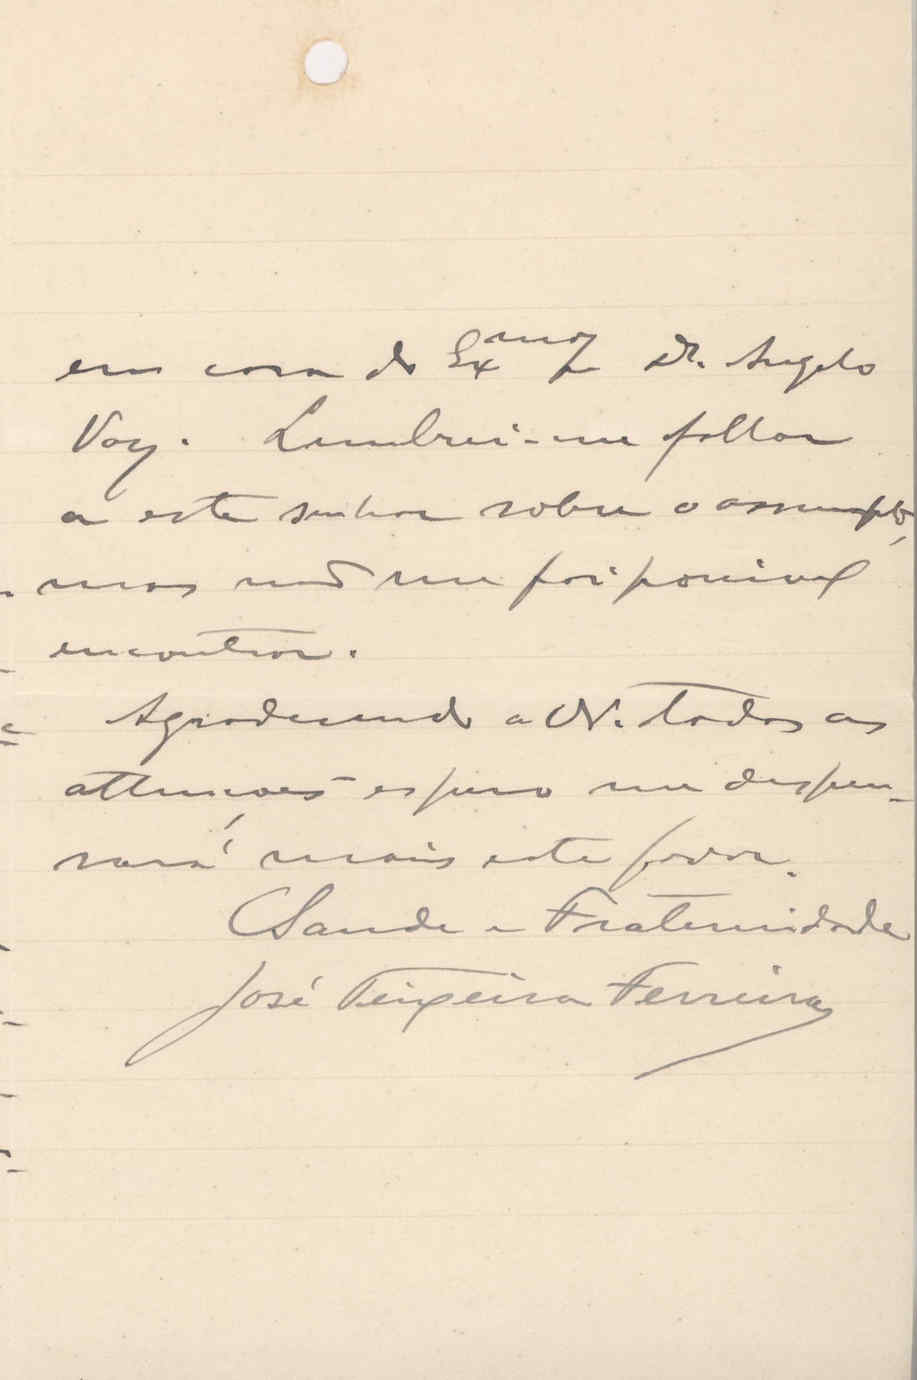 em casa do Exmo Sr. Dr. Angelo
Vaz. Lembrei-me fallar
a este senhor sobre o assumpto,
mas não me foi possivel
encontrar.
Agradecendo a V. todas as
attenções espero me dispen-
sará mais este favor.
Saude e Fraternidade
José Teixeira Ferreira